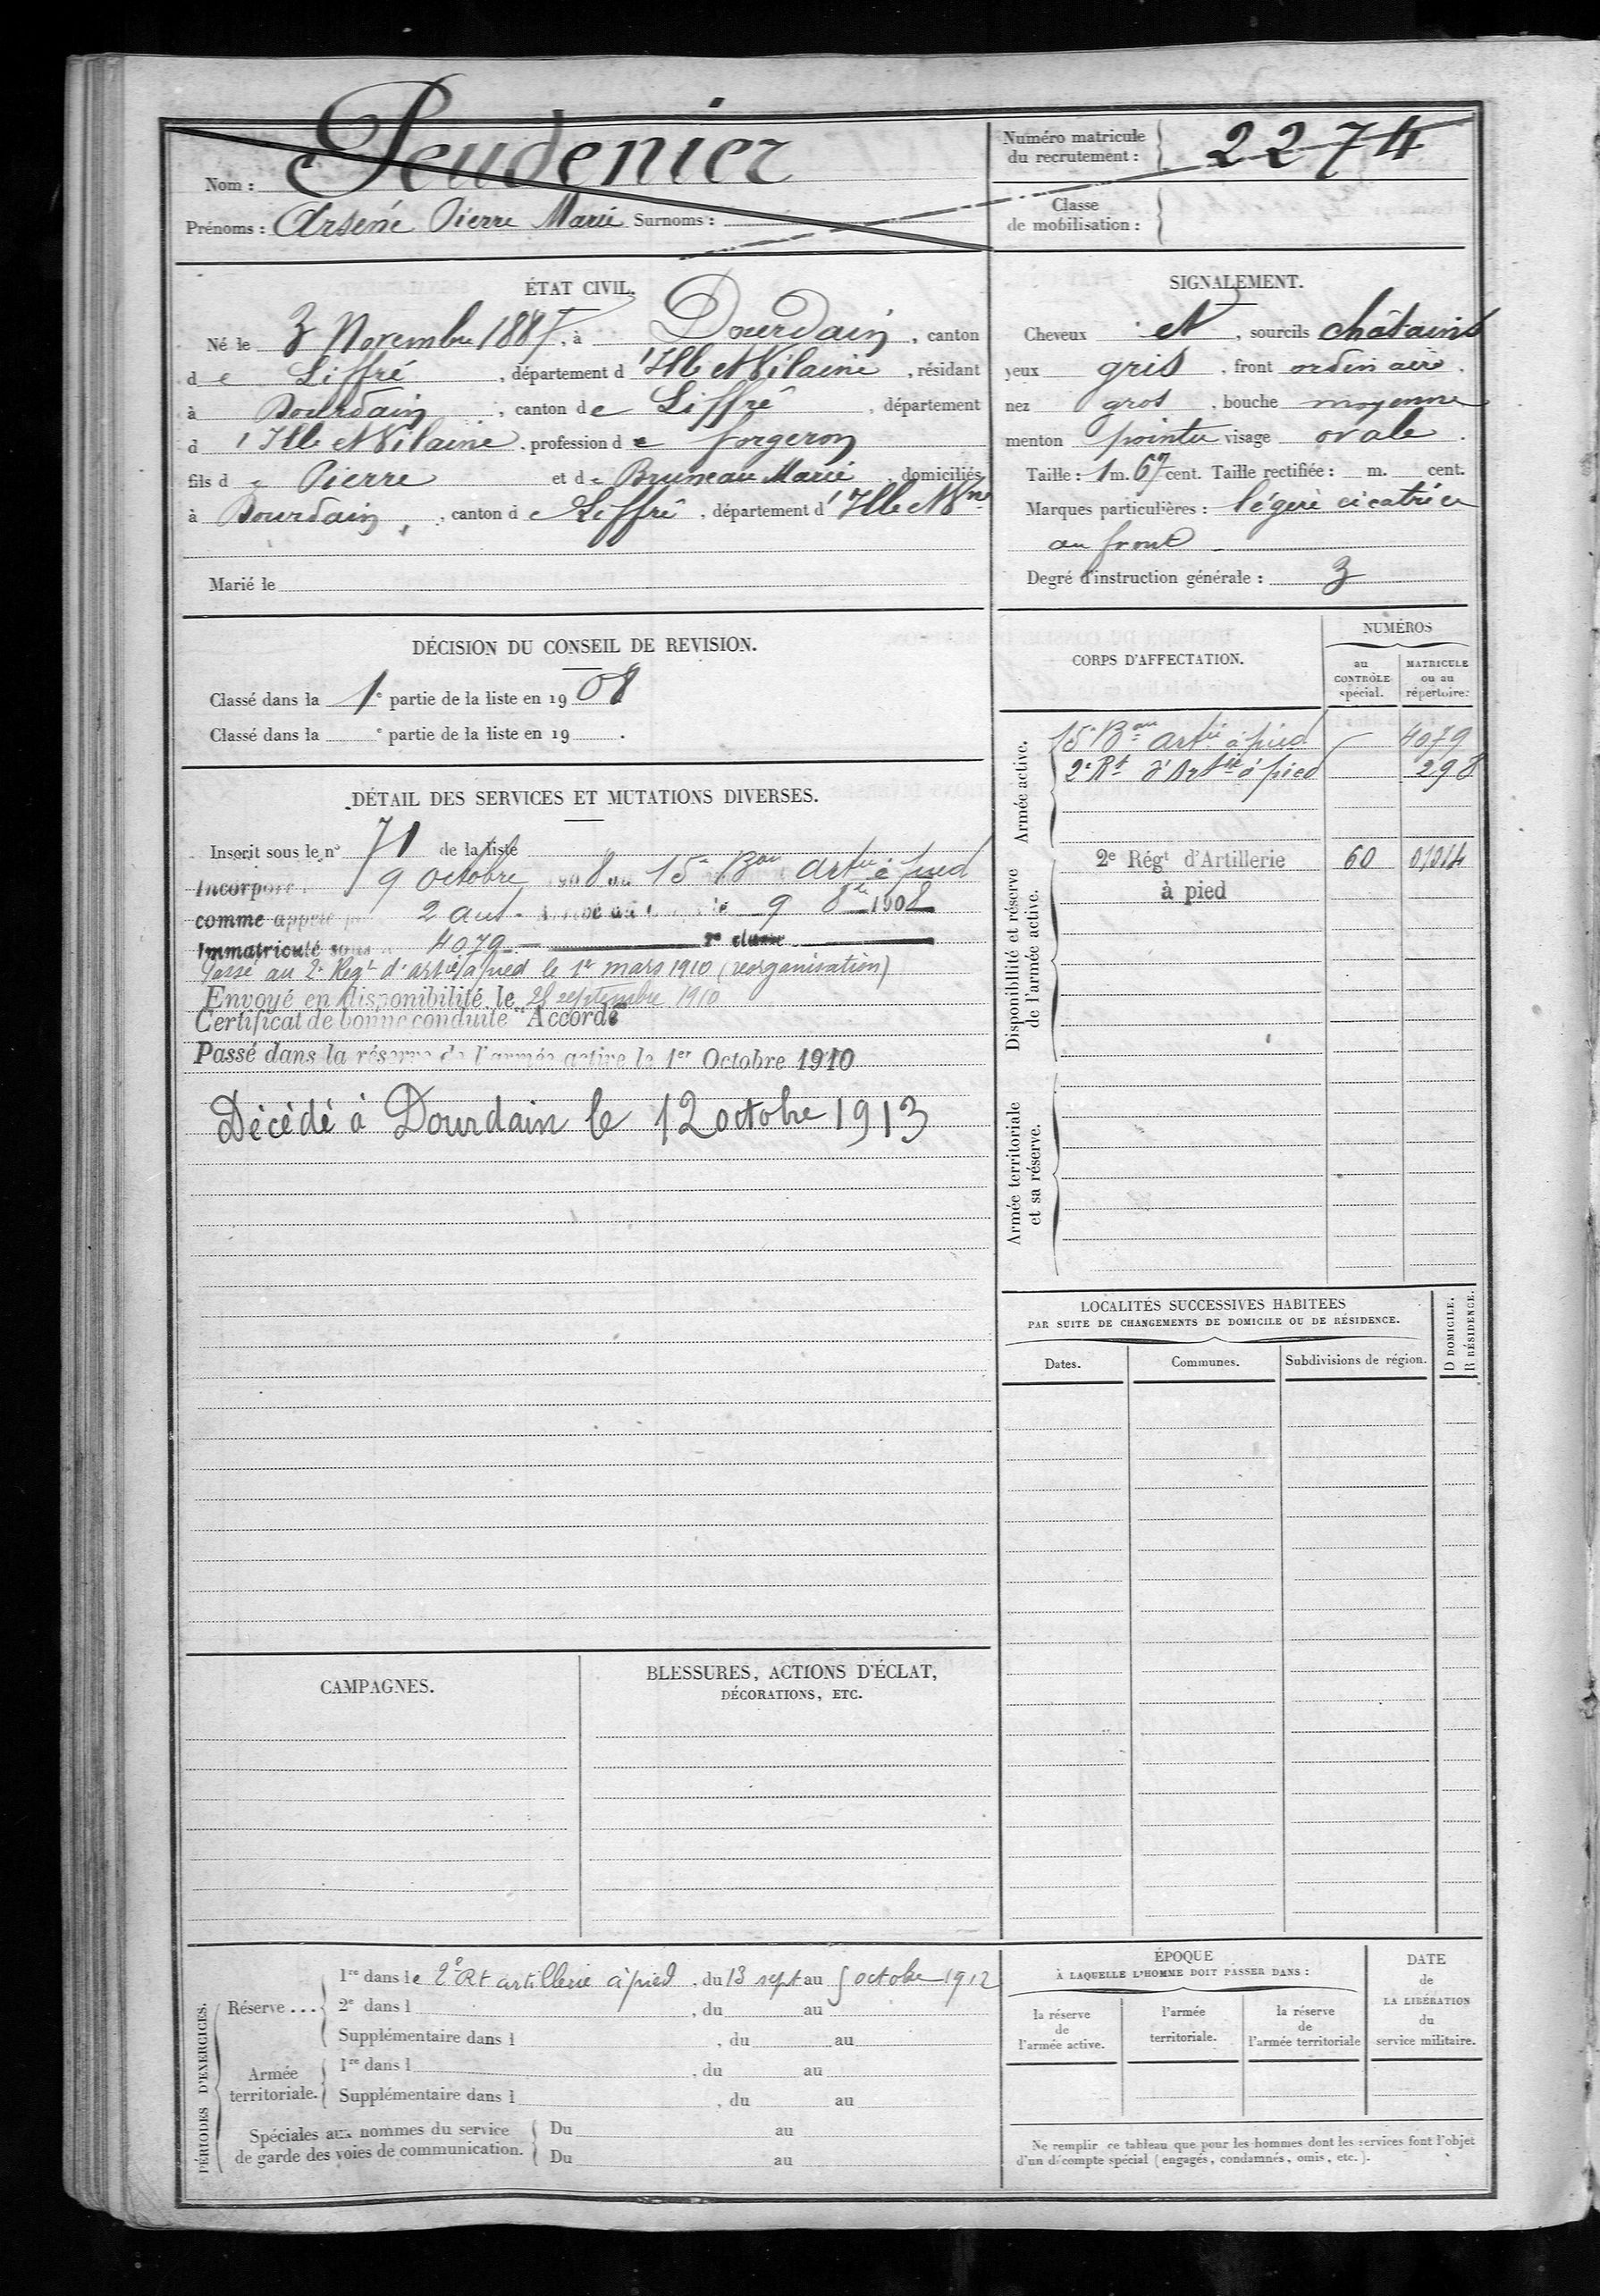 Nom : Peudenier
Prénoms : Arsène Pierre Marie Surnoms :
Numéro matricule
du recrutement : 2274
Classe
de mobilisation :
ÉTAT CIVIL.
Né le 3 Novembre 1887, à Dourdain, canton
de Liffré, département d'Ille et Vilaine, résidant
à Dourdain, canton de Liffré, département
d'Ille et Vilaine, profession de forgeron
fils de Pierre et de Bruneau Marie domiciliés
à Dourdain, canton de Liffré, département d'Ille et Vne
Marié le
SIGNALEMENT.
Cheveux et, sourcils châtains
yeux gris, front ordinaire,
nez gros, bouche moyenne
menton pointu visage ovale.
Taille : 1 m. 67 cent. Taille rectifiée : m. cent.
Marques particulières : légère cicatrice
au front
Degré d'instruction générale : 3
DÉCISION DU CONSEIL DE REVISION.
Classé dans la 1e partie de la liste en 1908
Classé dans la e partie de la liste en 19 .
DÉTAIL DES SERVICES ET MUTATIONS DIVERSES.
Inscrit sous le no 71 de la liste
Incorporé 9 octobre 1908 au 15e Bon Artie à pied
comme appelé 2 ans 9 8bre 1908
Immatriculé sous 4079 2e classe
Passé au 2e Regt d'artie à pied le 1er mars 1910 (reorganisation)
Envoyé en disponibilité le 25 septembre 1910
Certificat de bonne conduite "Accordé"
Passé dans la réserve de l'armée active le 1er Octobre 1910
Décédé à Dourdain le 12 octobre 1913
CORPS D'AFFECTATION.
NUMÉROS
au
CONTRÔLE
spécial.
MATRICULE
ou au
répertoire.
Armée active.
15e Bon Artie à pied 4079
2e Rt d'Artie à pied 298
Disponibilité et réserve
de l'armée active.
2e Régt d'Artillerie 60 01014
à pied
Armée territoriale
et sa réserve.
LOCALITÉS SUCCESSIVES HABITEES
PAR SUITE DE CHANGEMENTS DE DOMICILE OU DE RÉSIDENCE.
Dates. Communes. Subdivisions de région.
D DOMICILE.
R RÉSIDENCE.
CAMPAGNES.
BLESSURES, ACTIONS D'ÉCLAT,
DÉCORATIONS, ETC.
PÉRIODES D'EXERCICES.
Réserve ...
1re dans le 2e Rt artillerie à pied, du 13 sept au 5 octobre 1912
2e dans l , du au
Supplémentaire dans l , du au
Armée
territoriale.
1re dans l , du au
Supplémentaire dans l , du au
Spéciales aux hommes du service
de garde des voies de communication.
Du au
Du au
ÉPOQUE
À LAQUELLE L'HOMME DOIT PASSER DANS :
la réserve
de
l'armée active.
l'armée
territoriale.
la réserve
de
l'armée territoriale
DATE
de
LA LIBÉRATION
du
service militaire.
Ne remplir ce tableau que pour les hommes dont les services font l'objet
d'un décompte spécial (engagés, condamnés, omis, etc.).